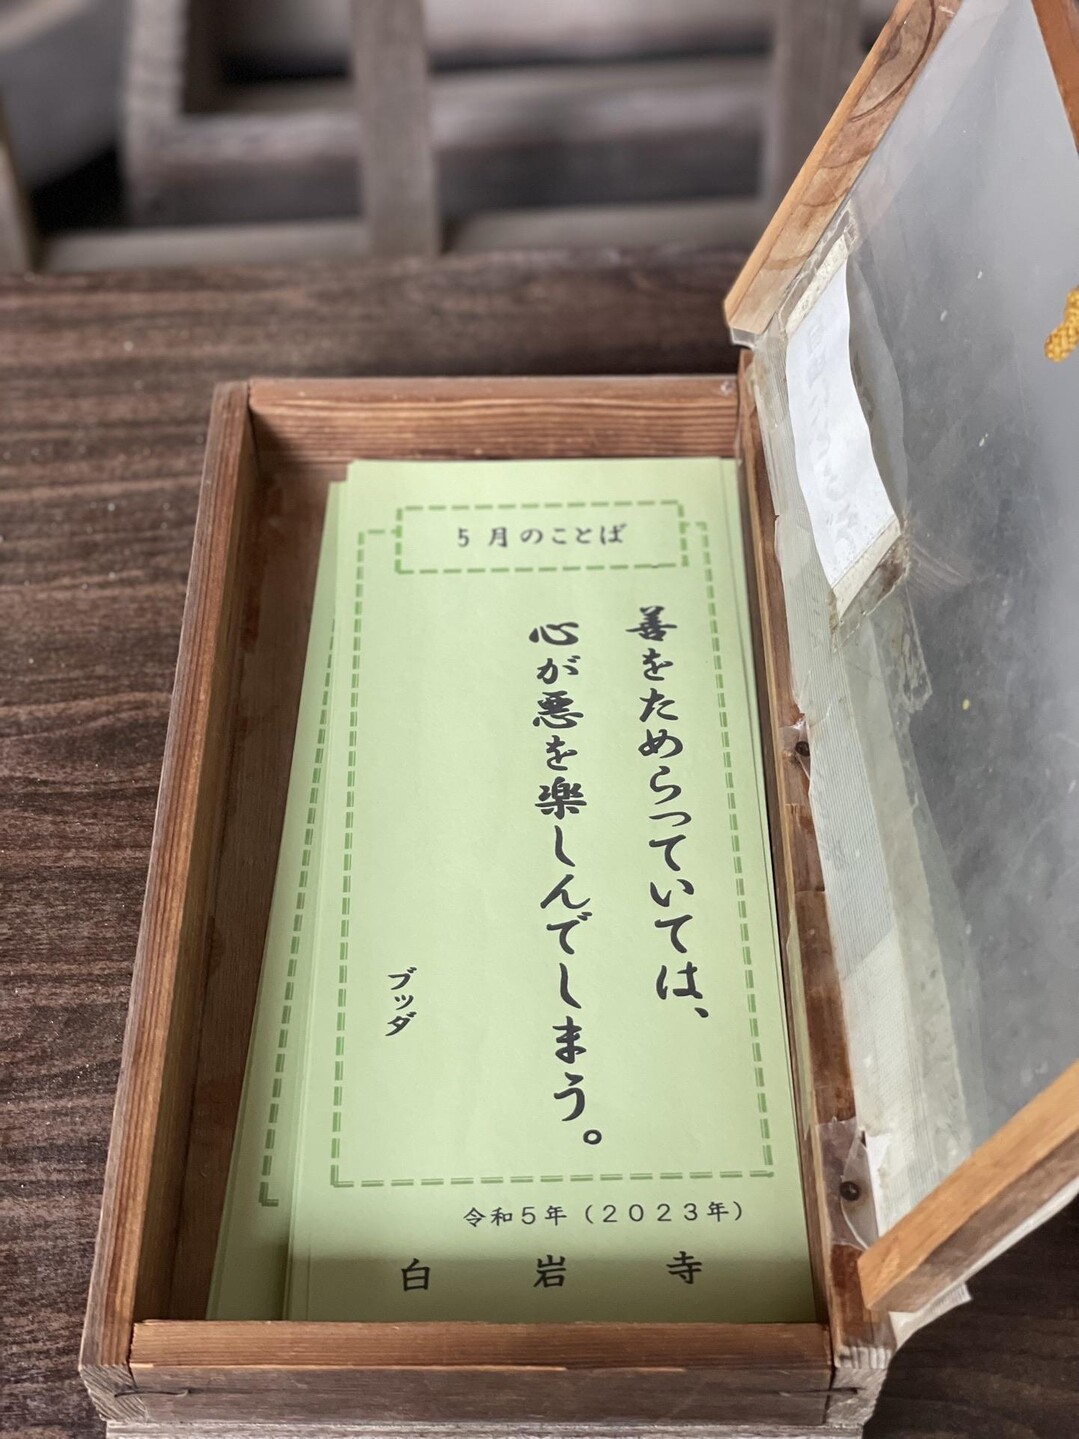 5月のことば
善をためらっていては、
心が悪を楽しんでしまう。
ブッダ
令和5年(2023年)
白岩寺